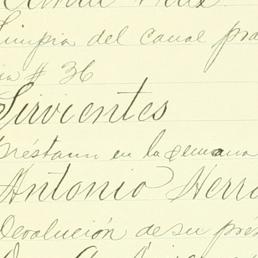 Limpia del canal pra
ia # 36
Sirvientes
Préstamo en la semana
Antonio Herr
Devolución de su pré